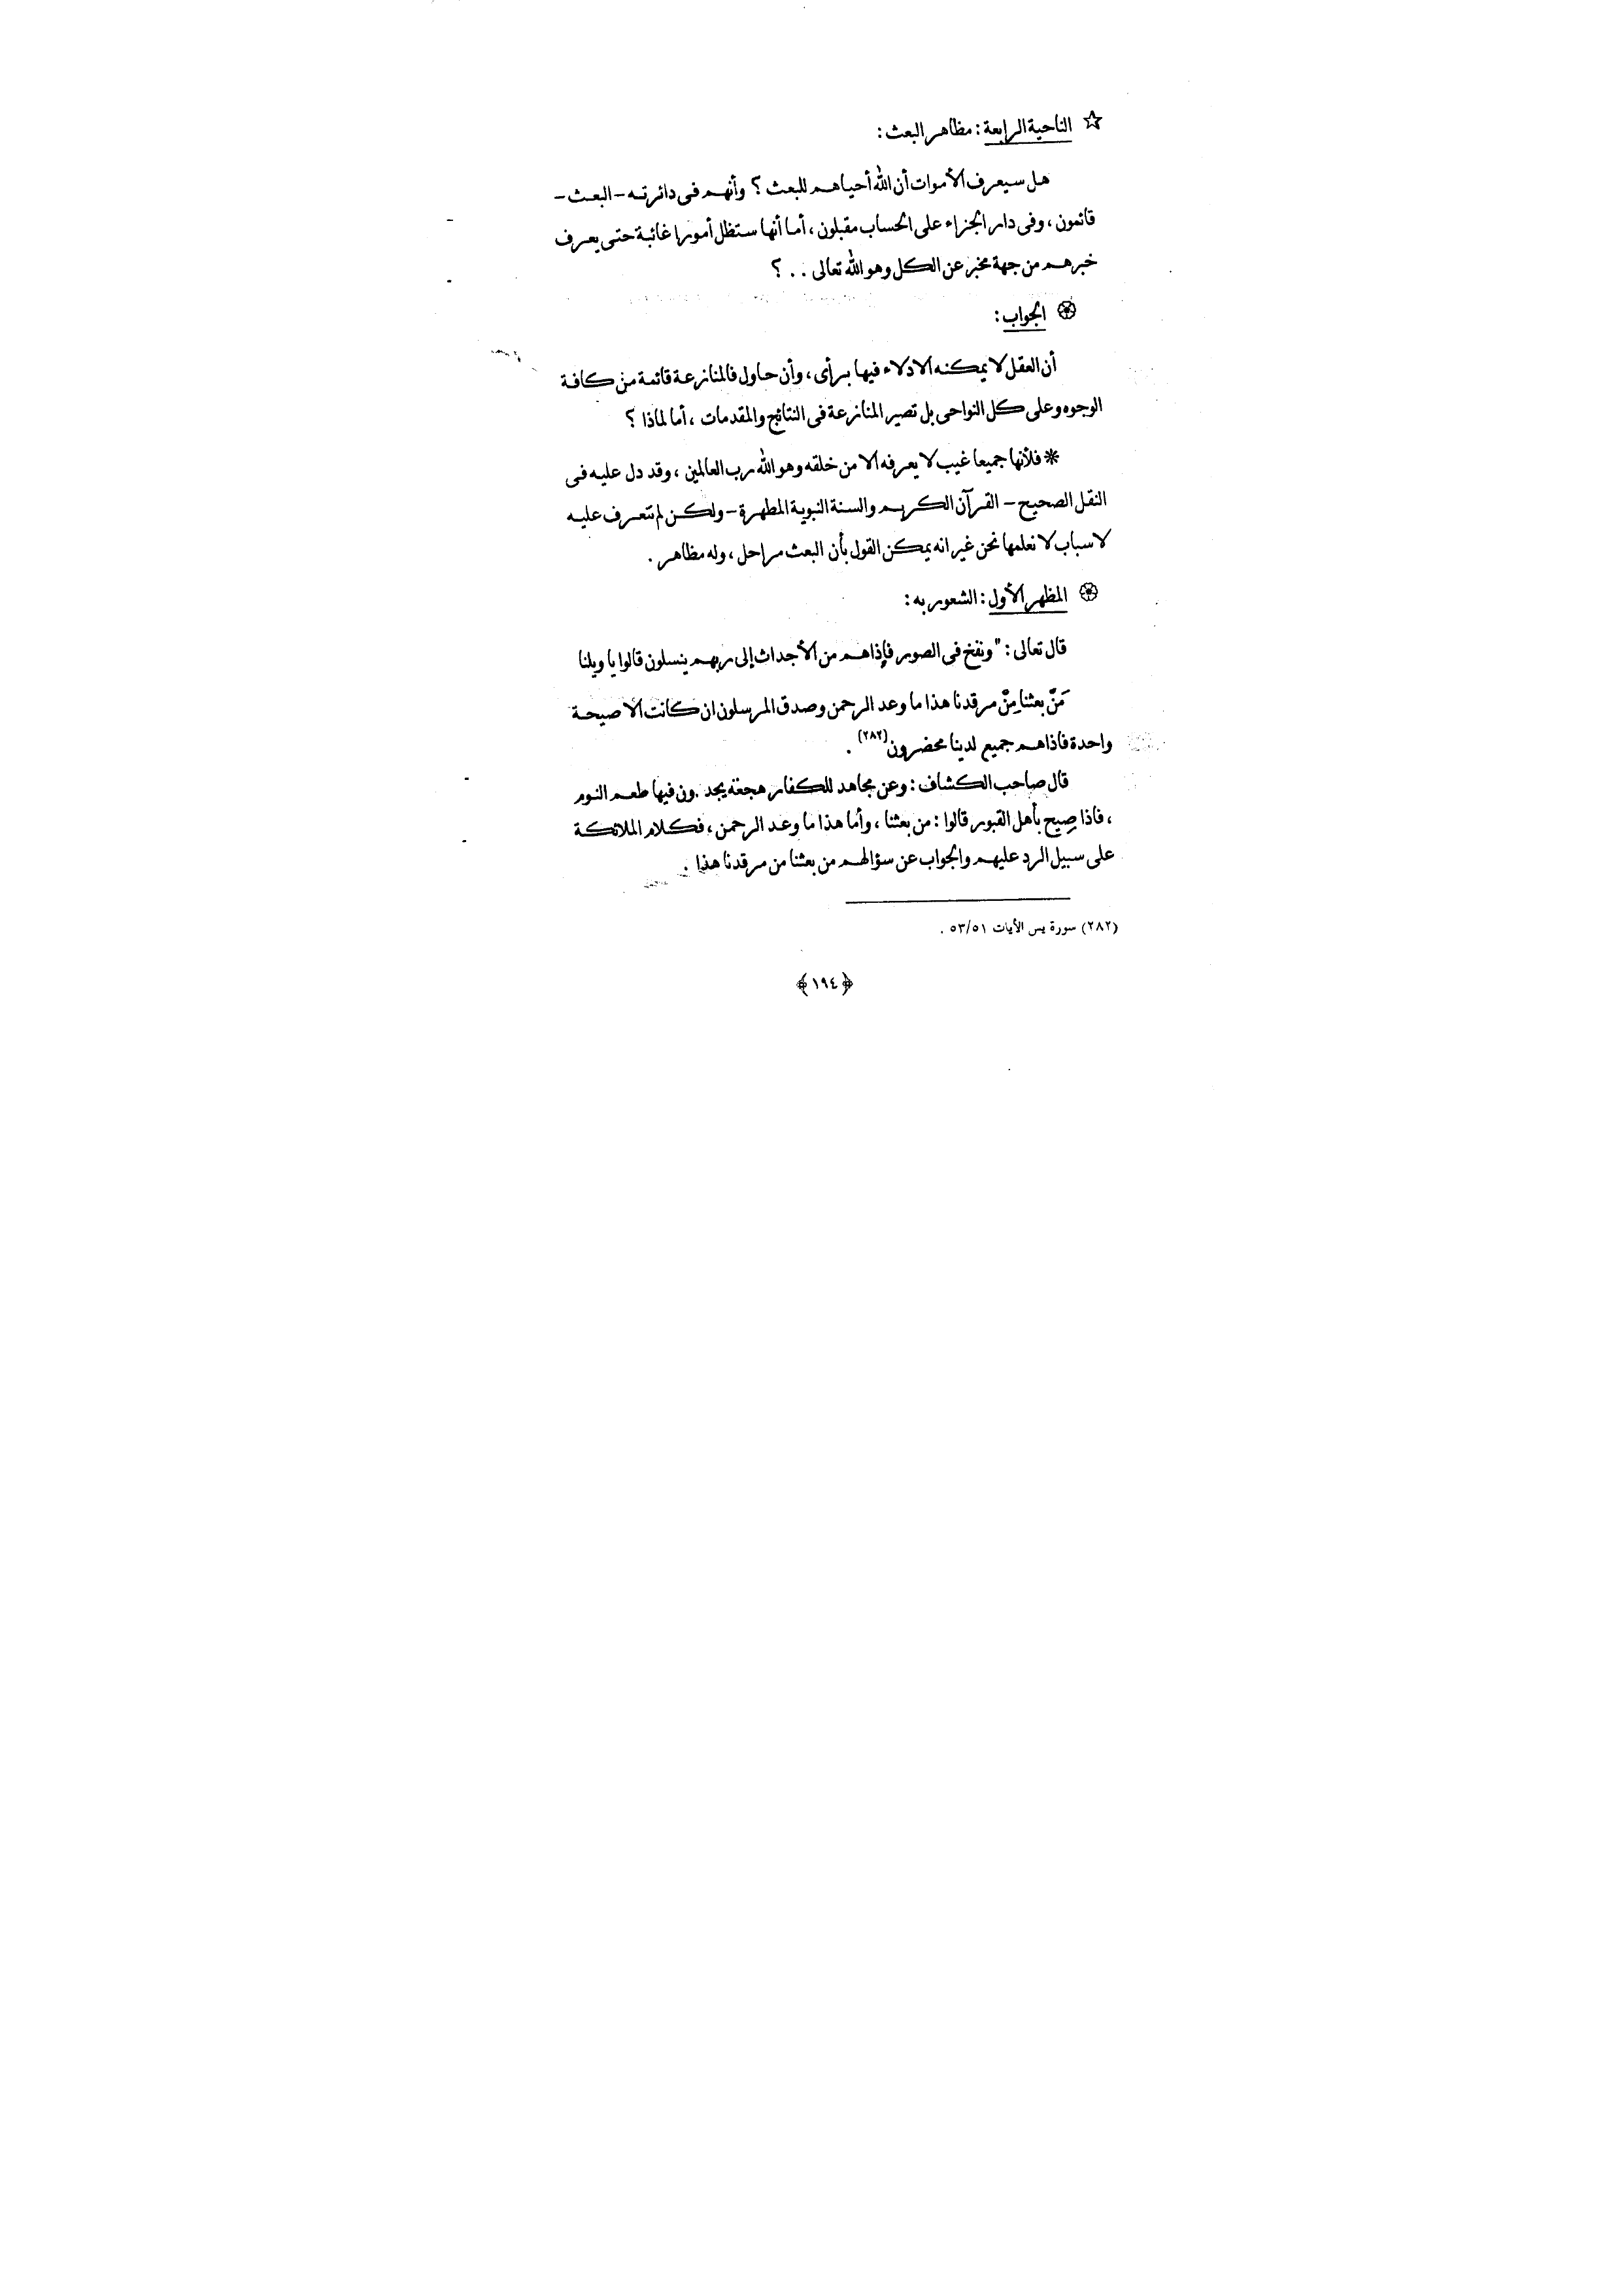 ☆ الناحية الرابعة : مظاهر البعث :
هل سيعرف الأموات أن الله أحياهم للبعث ؟ وأنهم فى دائرته – البعث –
قائمون ، وفى دار الجزاء على الحساب مقبلون ، أما أنها ستظل أمورا غائبة حتى يعرف
خبرهم من جهة مخبر عن الكل وهو الله تعالى . . ؟
الجواب :
أن العقل لا يمكنه الادلاء فيها برأى ، وأن حاول فالمنازعة قائمة من كافة
الوجوه وعلى كل النواحى بل تصير المنازعة فى النتائج والمقدمات ، أما لماذا ؟
* فلأنها جميعا غيب لا يعرفه الا من خلقه وهو الله رب العالمين ، وقد دل عليه فى
النقل الصحيح – القرآن الكريم والسنة النبوية المطهرة – ولكن لم نتعرف عليه
لاسباب لا نعلمها نحن غير انه يمكن القول بأن البعث مراحل ، وله مظاهر .
المظهر الأول : الشعور به :
قال تعالى : " ونفخ فى الصور فإذا هم من الأجداث إلى ربهم ينسلون قالوا يا ويلنا
مَنّ بعثنا مِنّ مرقدنا هذا ما وعد الرحمن وصدق المرسلون ان كانت الا صيحة
واحدة فاذا هم جميع لدينا محضرون (٢٨٢) .
قال صاحب الكشاف : وعن مجاهد للكفار هجعة يجدون فيها طعم النوم
، فاذا صِيح بأهل القبور قالوا : من بعثنا ، وأما هذا ما وعد الرحمن ، فكلام الملائكة
على سبيل الرد عليهم والجواب عن سؤالهم من بعثنا من مرقدنا هذا .
(٢٨٢) سورة يس الأيات ٥٣/٥١ .
﴿١٩٤﴾